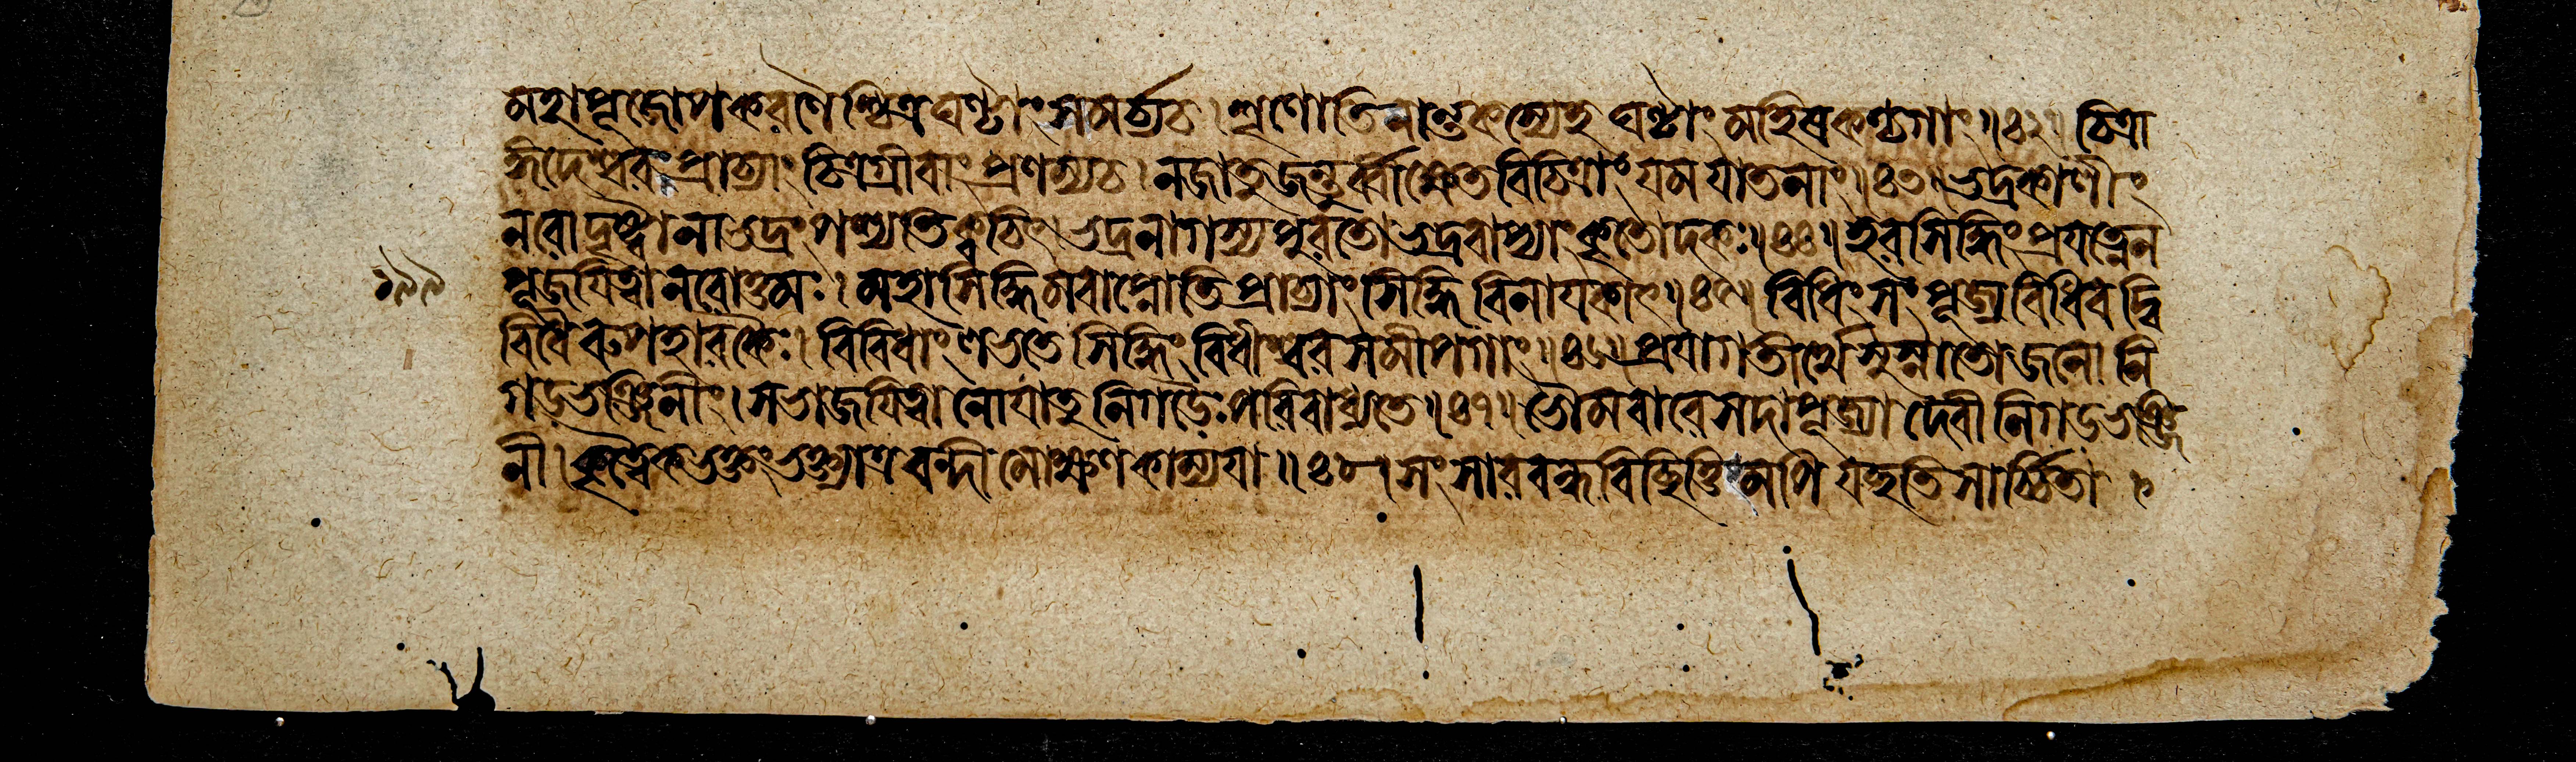 মহাপূজোপকরণৈশ্চিত্রঘণ্টাং সমর্চ্য চ। শৃণোতি নান্তকস্যেহ ঘণ্টাং মহিষকণ্ঠগাং॥৪২॥ চিত্রা
ঙ্গদেশ্বরং প্রাচ্যাং চিত্রগ্রীবাং প্রণম্য চ। ন জাতু জন্তুর্ব্বীক্ষেত বিচিত্রাং যমযাতনাং॥৪৩॥ ভদ্রকালীং
নরো দৃষ্ট্বা নাভদ্রং পশ্যতি ক্বচিৎ। ভদ্রনাগস্য পুরতো ভদ্রবাপ্যাং কৃতোদকঃ॥৪৪॥ হরসিদ্ধিং প্রযত্নেন
১৯৯
পূজযিত্বা নরোত্তমঃ। মহাসিদ্ধিমবাপ্নোতি প্রাচ্যাং সিদ্ধিবিনাযকাৎ॥৪৫॥ বিধিং সংপূজ্য বিধিবদ্বি
বিধৈরুপহারকৈঃ। বিবিধাং লভতে সিদ্ধিং বিধীশ্বরসমীপগাং॥৪৬॥ প্রযাগতীর্থে সুস্নাতো জনো নি
গডভঞ্জিনীং। সভাজযিত্বা নো যাতু নিগডৈঃ পরিবাধ্যতে॥৪৭॥ ভৌমবারে সদা পূজ্যা দেবী নিগডভঞ্জি
নী। কৃত্বৈকভুক্তং ভক্ত্যাত্র বন্দীমোক্ষণকাম্যযা॥৪৮॥ সংসারবন্ধবিচ্ছিত্তিমপি যচ্ছতি সার্চ্চিতা।